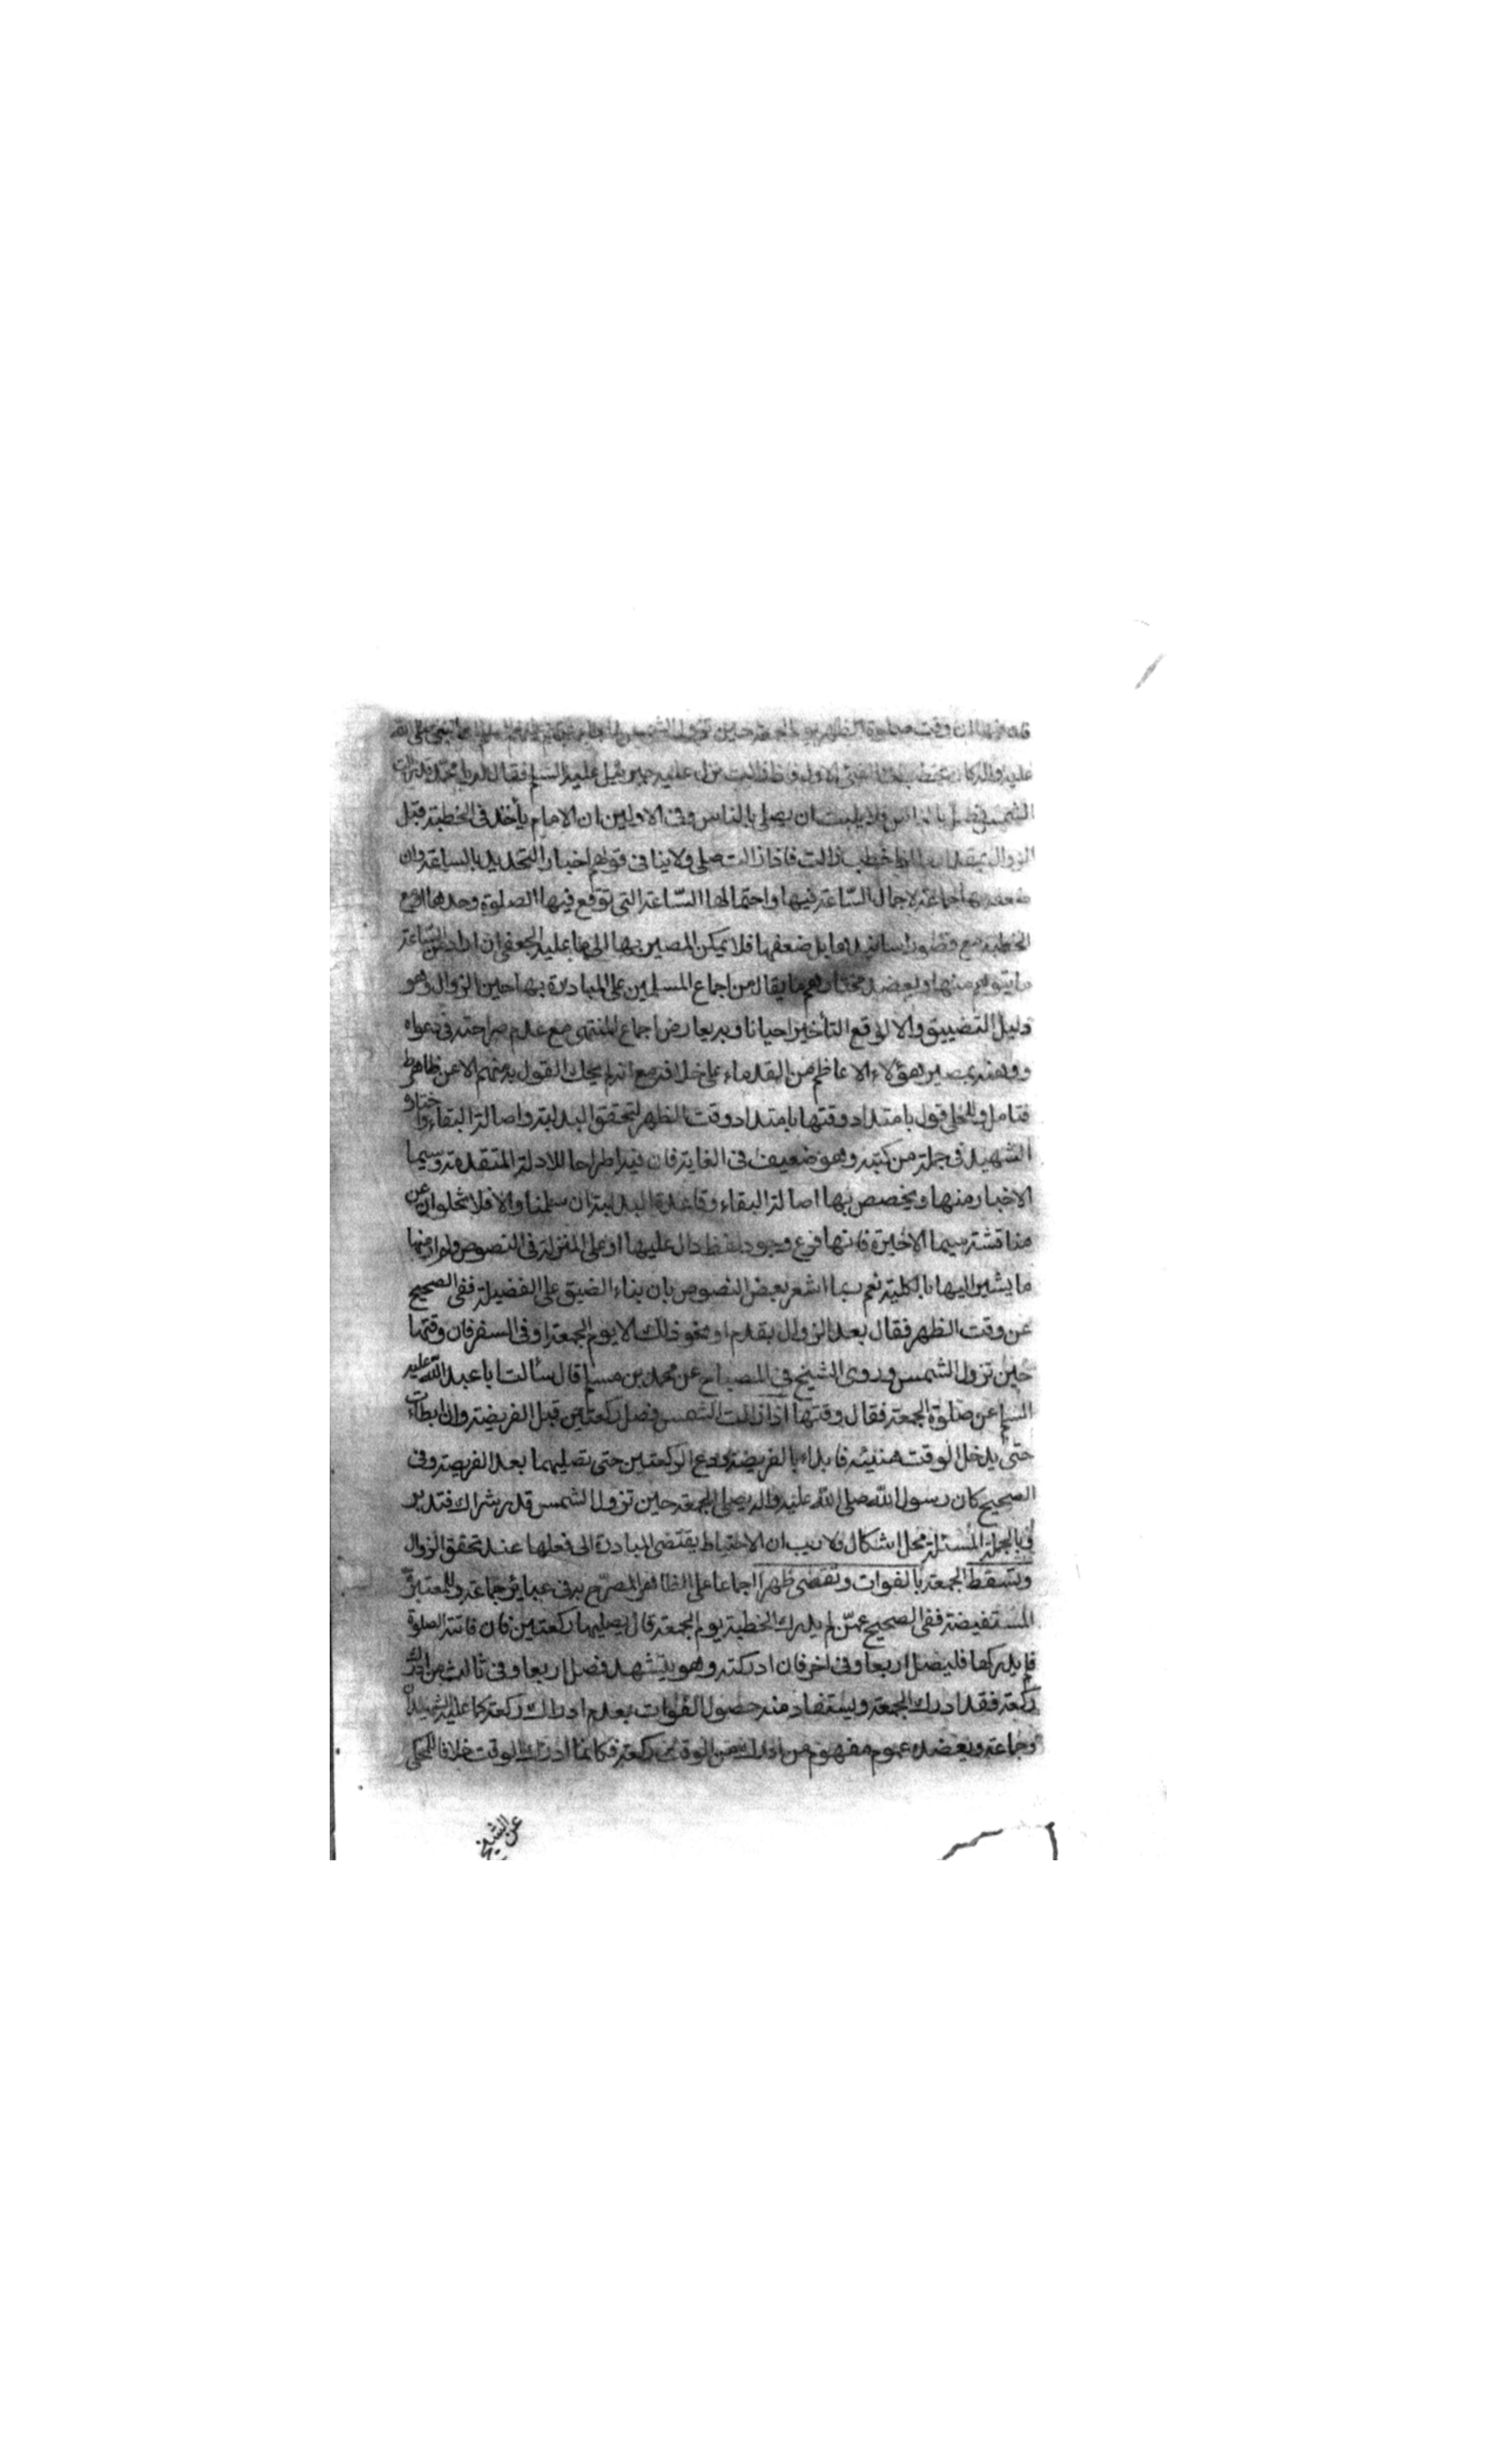 وقت صلوة الظهر يوم الجمعة حين تزول الشمس
عليه واله كان يخطب في الظل الاول فاذا زالت نزل عليه جبرئيل عليه السلم فقال له يا محمد قد زالت
الشمس فصل بالناس فلا يلبث ان يصلي بالناس وفي الاولين ان الامام يأخذ في الخطبة قبل
الزوال بمقدار ما اذا خطب زالت فاذا زالت صلى ولا ينافي قولهم اخبار التحديد بالساعة وان
جماعة لاجمال الساعة فيها واحتمالها الساعة التي توقع فيها الصلوة وحدها او مع
الخطبة مع قصور اسانيدها بل ضعفها فلا يمكن المصير بها الى ما عليه الجعفي ان اراد من الساعة
ما يتوهم منها ويعضد مختارهم ما يقال من اجماع المسلمين على المبادرة بها حين الزوال وهو
دليل التضييق والا لوقع التأخير احيانا وبه يعارض اجماع المنتهى مع عدم صراحته في دعواه
ووهنه بمصير هؤلاء الاعاظم من القدماء على خلافه مع انه لم يحك القول به منهم الا عن ظاهر
فتامل وللحلي قول بامتداد وقتها بامتداد وقت الظهر لتحقق البدلية واصالة البقاء واختاره
الشهيد في جملة من كتبه وهو ضعيف في الغاية فان فيه اطراحا للادلة المتقدمة وسيما
الاخبار منها ويخصص بها اصالة البقاء وقاعدة البدلية ان سلمنا والا فلا تخلوان عن
مناقشة سيما الاخيرة فانها فرع وجود لفظ دال عليها او على المنزلة في النصوص ولم ار منها
ما يشير اليها بالكلية نعم ربما اشعر بعض النصوص بان بناء الضيق على الفضيلة ففي الصحيح
عن وقت الظهر فقال بعد الزوال بقدم او نحو ذلك الا يوم الجمعة او في السفر فان وقتها
حين تزول الشمس وروى الشيخ في المصباح عن محمد بن مسلم قال سألت ابا عبد الله عليه
السلم عن صلوة الجمعة فقال وقتها اذا زالت الشمس فصل ركعتين قبل الفريضة وان ابطات
حتى يدخل الوقت هنيئة فابداء بالفريضة ودع الركعتين حتى تصليهما بعد الفريضة وفي
الصحيح كان رسول الله صلى الله عليه واله يصلي الجمعة حين تزول الشمس قدر شراك فتدبر
وبالجملة المسئلة محل اشكال فلا ريب ان الاحتياط يقتضي المبادرة الى فعلها عند تحقق الزوال
وتسقط الجمعة بالفوات وتقضى ظهرا اجماعا على الظاهر المصرح به في عبائر جماعة وللمعتبرة
المستفيضة ففي الصحيح عمن لم يدرك الخطبة يوم الجمعة قال يصليها ركعتين فان فاتته الصلوة
فلم يدركها فليصل اربعا وفي اخر فان ادركته وهو يتشهد فصل اربعا وفي ثالث من ادرك
ركعة فقد ادرك الجمعة ويستفاد منه حصول الفوات بعدم ادراك ركعة كما عليه الشهيدان
وجماعة ويعضده عموم مفهوم من ادرك من الوقت ركعة فكانما ادرك الوقت خلافا للمحكي
عن الشيخ